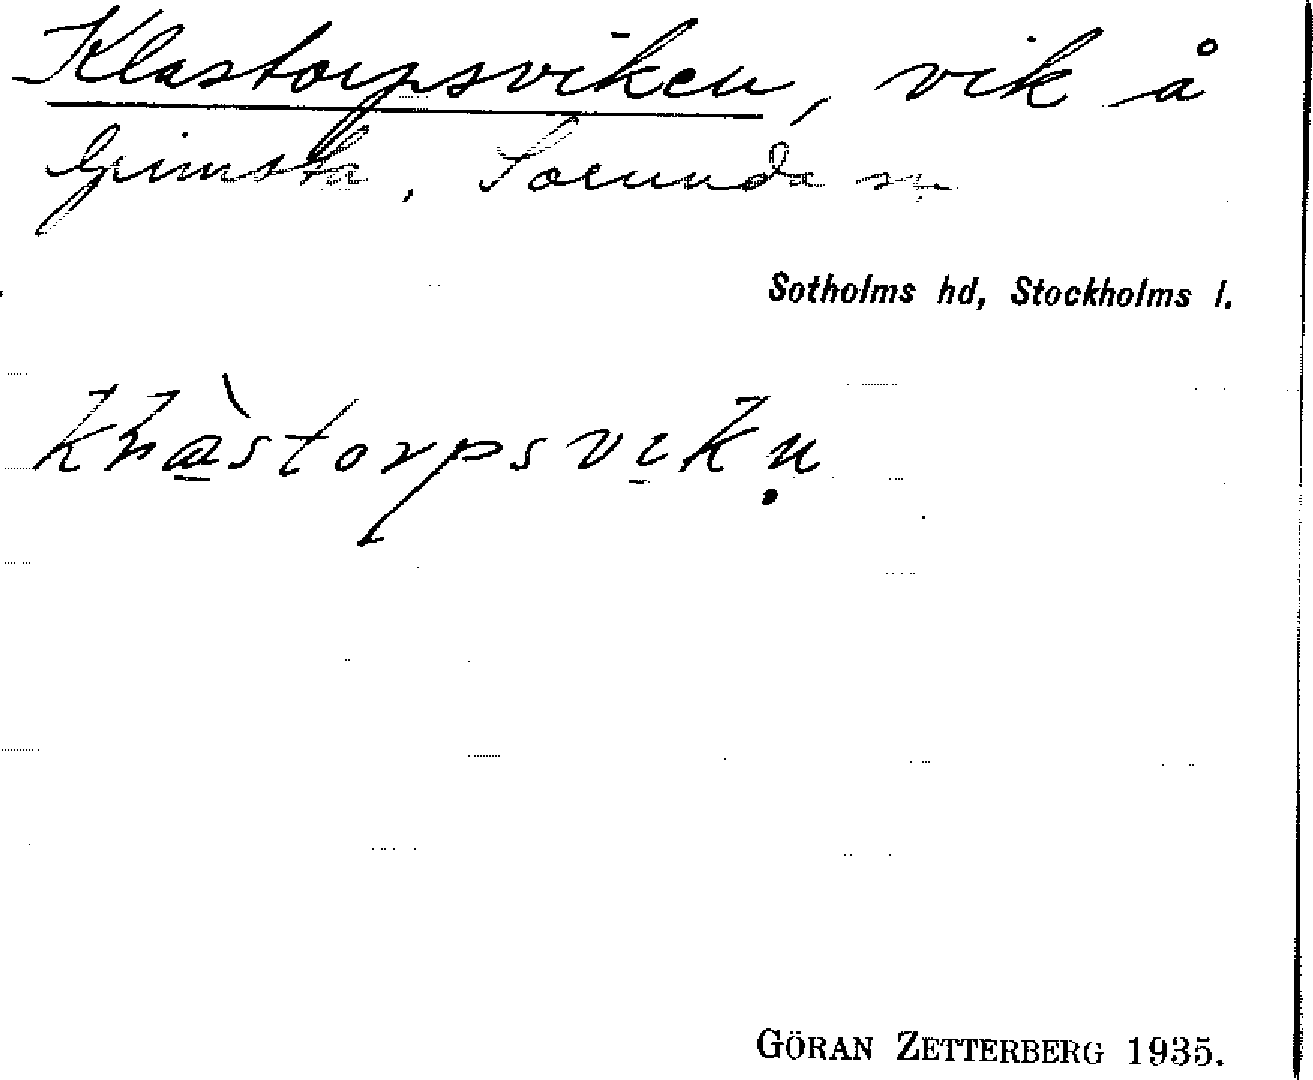 Klastorpsviken, vik å
Grimsta, Sorunda sn
Sotholms hd, Stockholms l.
GÖRAN ZETTERBERG 1935.